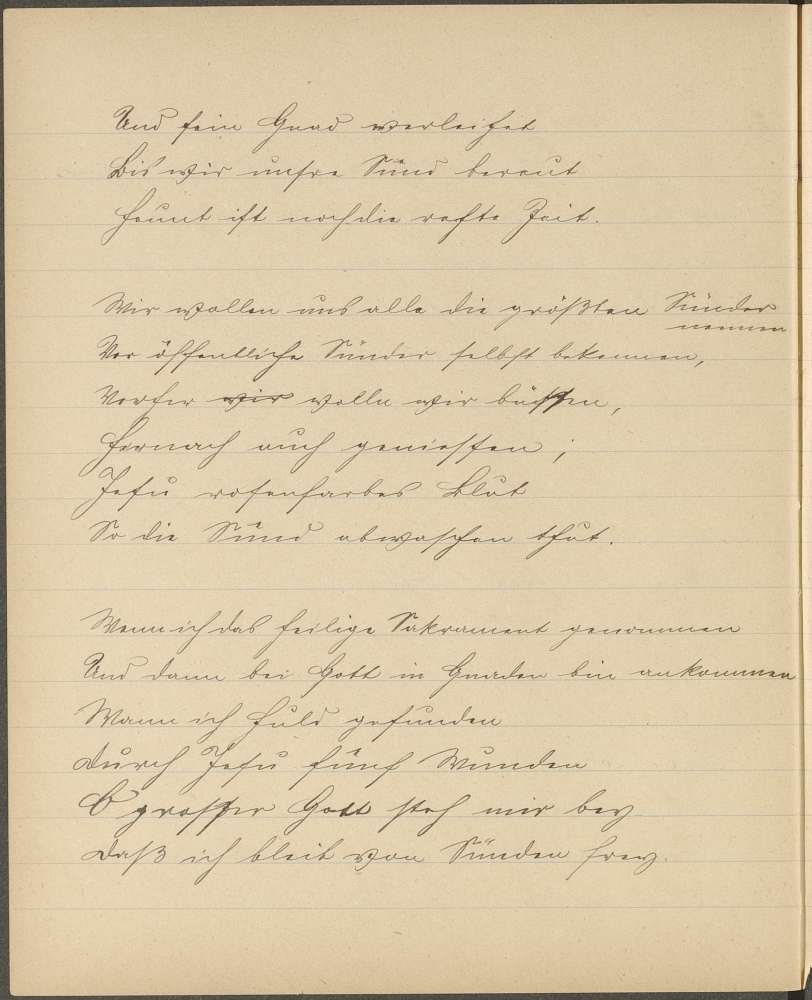 Und sein Gnad verleihet
Bis wir unsre Sünd bereut
Heunt ist noch die rechte Zeit.
Wir wollen uns alle die größten Sünder
nennen
Vor öffentliche Sünder selbst bekennen,
Vorher wir wolln wir büssen,
Hernach auch geniessen;
Jesu rosenfarbes Blut
So die Sünd abwaschen thut.
Wenn ich das heilige Sakrament genommen
Und dann bei Gott in Gnaden bin ankommen
Wann ich Huld gefunden
Durch Jesu fünf Wunden
O grosser Gott steh mir bey
Daß ich bleib von Sünden frey.